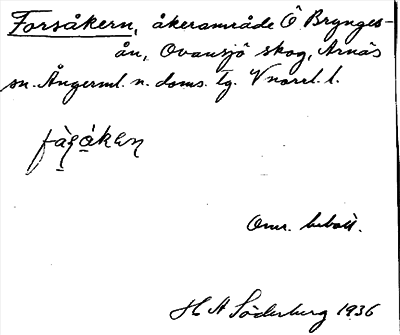 Forsåkern, åkerområde Ö Brynges-
ån, Ovansjö skog, Arnäs
sn. Ångerml. n. doms. tg. V norrl. l.
fàsåkeṇ
Omr. bebott.
H A Söderberg 1936